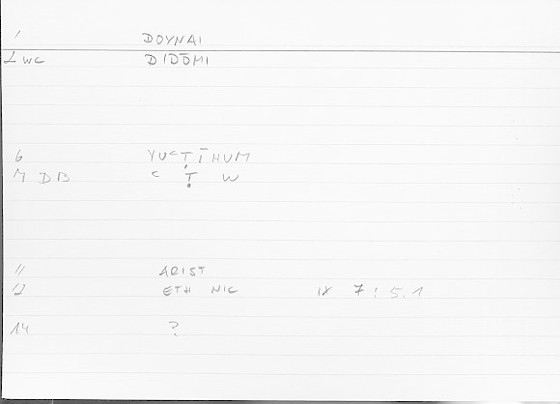 1 DOYNAI
2 WC DIDŌMI
6 YUʿṬĪHUM
M DB ʿ Ṭ W
11 ARIST
12 ETH NIC IX 7 : 5.1
14 ?